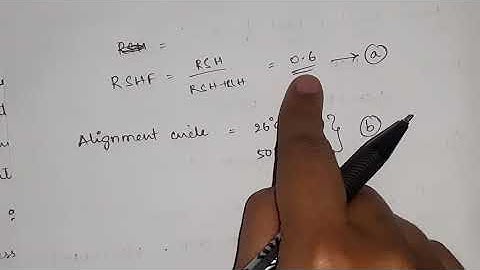 RSH =
RSHF = RSH / RSH+RLH = 0.6 → (a)
Alignment circle = 26° } (b)
50